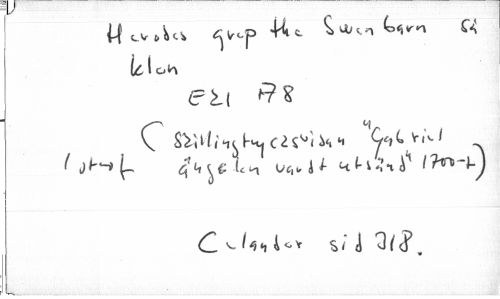 Herodes grep the Swenbarn så
klen
E21 178
(skillingtrycksvisan "Gabriel
ängelen vardt utsänd" 1700-t)
1 strof
Celander sid 318.